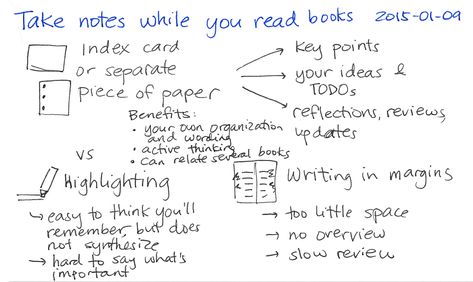 Take notes while you read books 2015-01-09
Index card
or separate
piece of paper
key points
your ideas &
TODOs
reflections, reviews,
updates
Benefits:
• your own organization
and wording
• active thinking
• can relate several books
vs
Highlighting
→ easy to think you'll
remember, but does
not synthesize
→ hard to say what's
important
Writing in margins
→ too little space
→ no overview
→ slow review